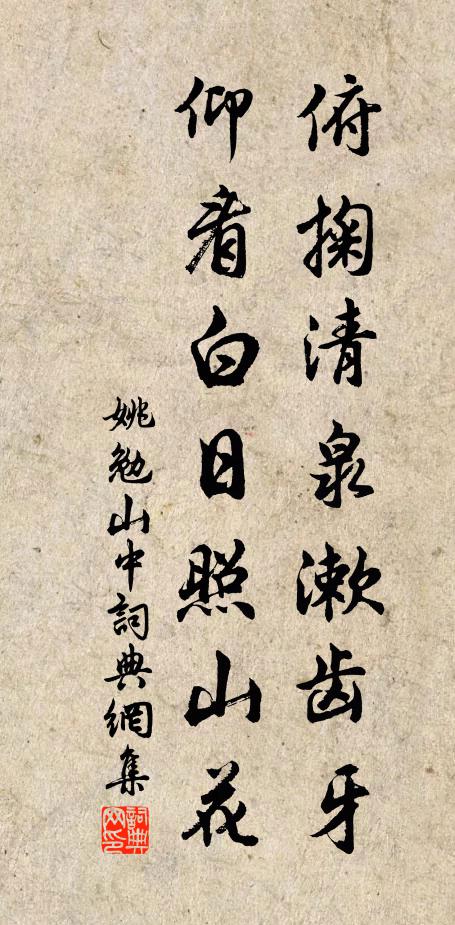 俯掬清泉漱齿牙
仰看白日照山花
姚勉山中詞典網集
詞典網印